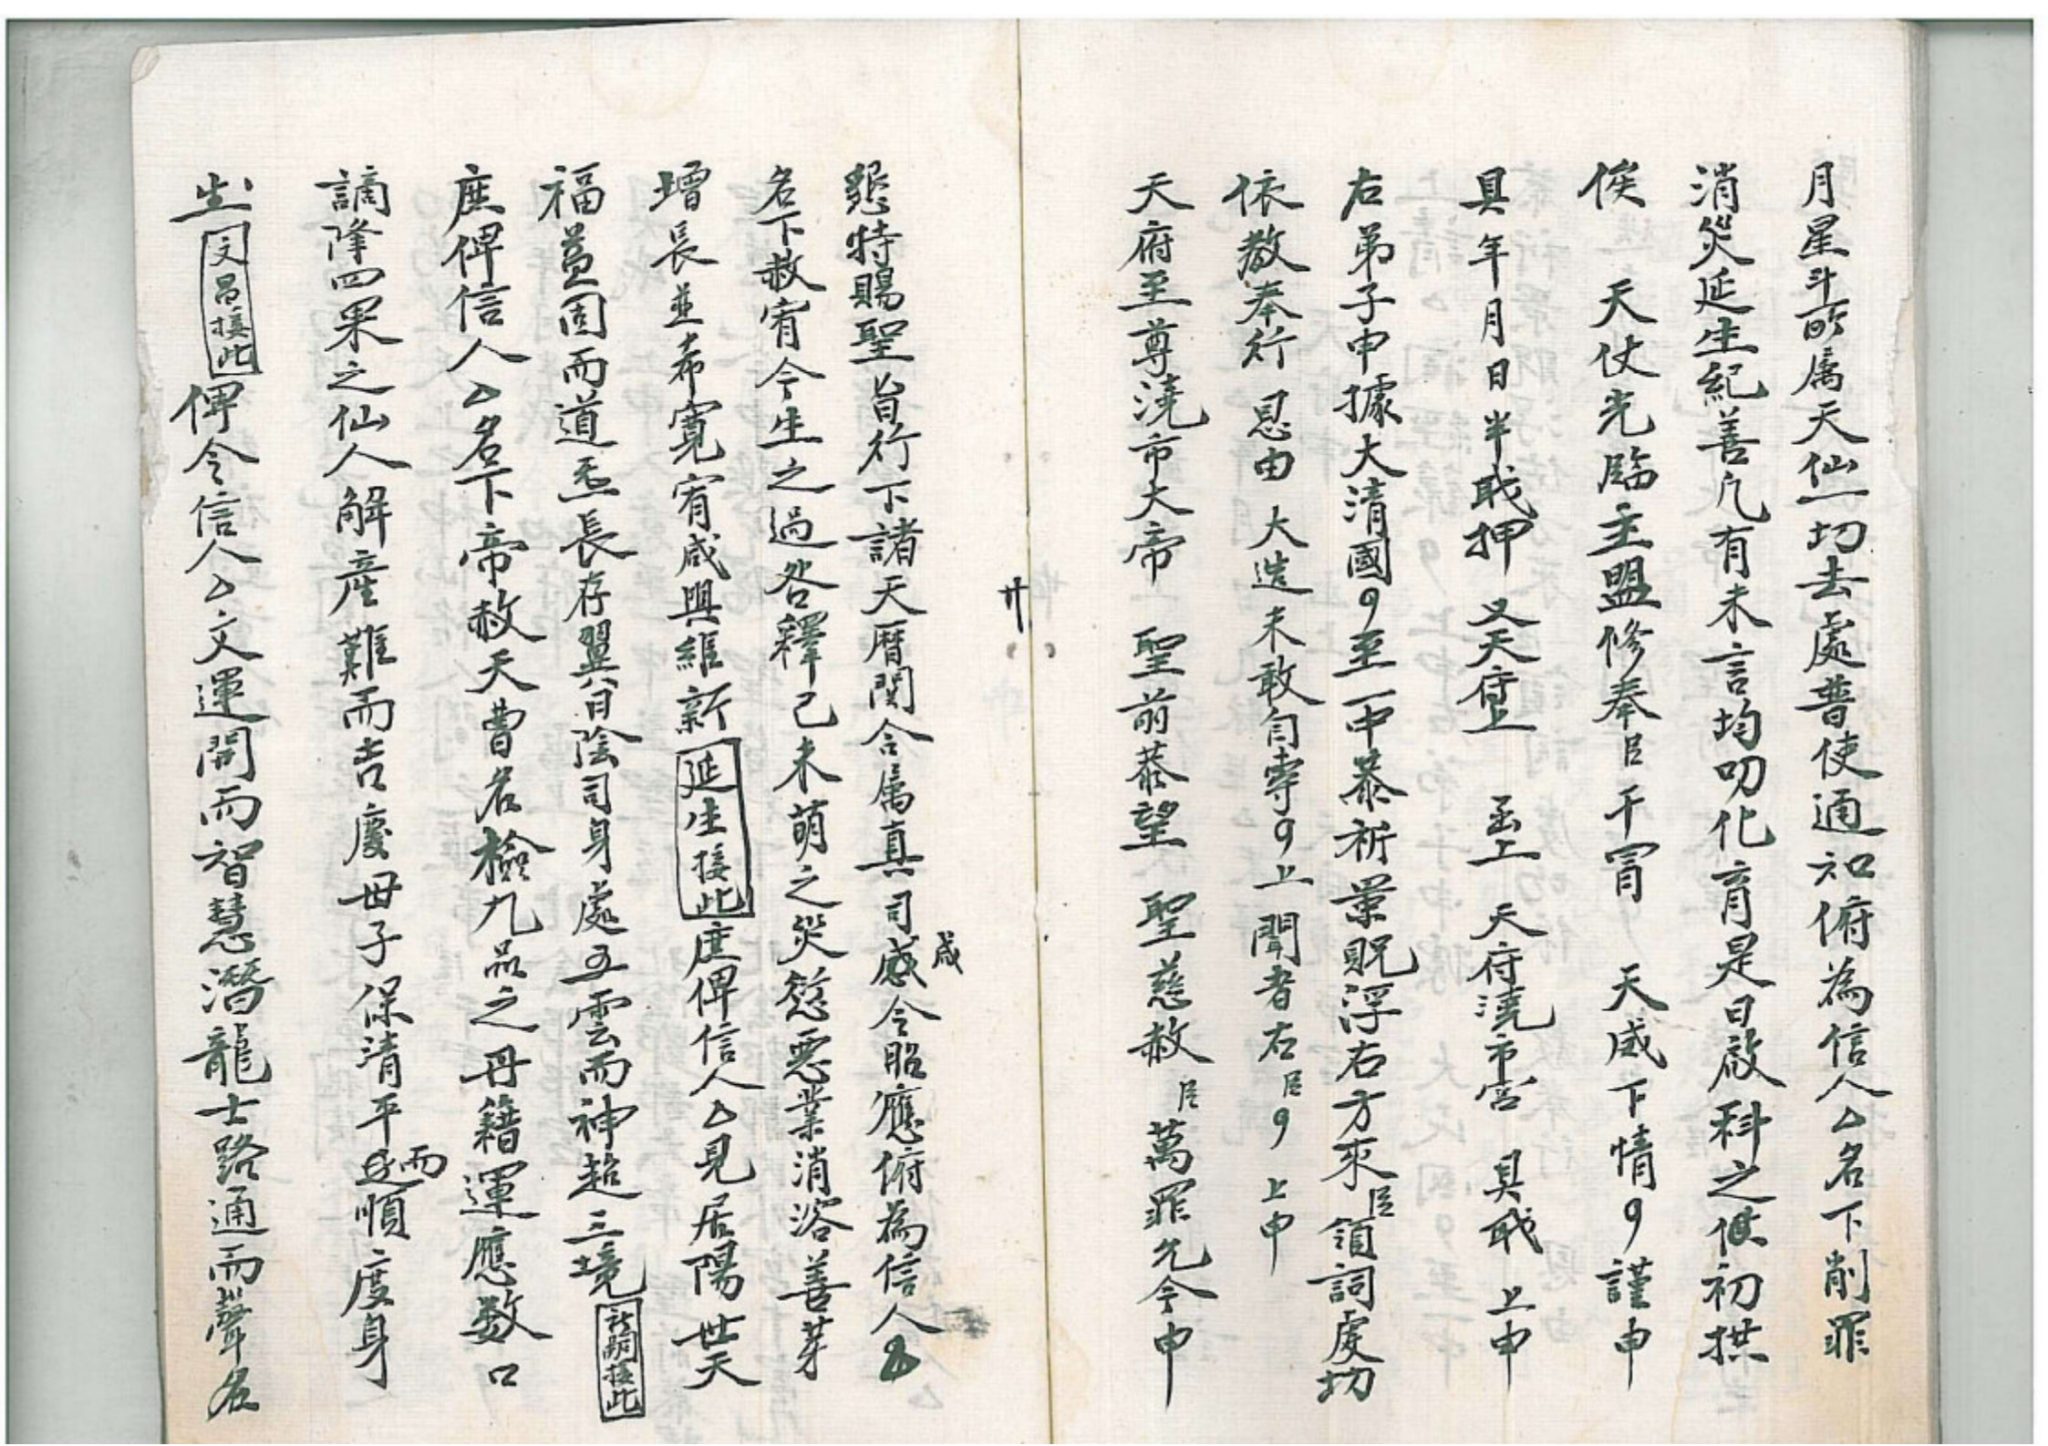 月星斗所属天仙一切去處普使通知俯為信人厶名下削罪
消災延生紀善凡有未言均叨化育是日啟科之侯初拱
俟 天仗光臨主盟修奉臣干冐 天威下情9謹申
具年月日半戝押 又天府上 函上 天府澆市宮 具戝 上申
右弟子申據大清國9至一中恭祈景貺浮右方來臣領詞虔切
依教奉行 恩由 大造未敢自専9上聞者右臣9上申
天府至尊澆市大帝 聖前恭望 聖慈赦臣萬罪允今申
懇特賜聖旨行下諸天曆関合属真司感咸令昭應俯為信人厶
名下赦宥今生之過咎釋己未萌之災愆惡業消溶善芽
增長並希寬宥咸與維新 延生接此 庶俾信人厶見居陽世天
福益固而道炁長存翼日陰司身處五雲而神超三境 祈嗣接此
庶俾信人厶名下帝赦天曹名檢九品之丹籍運應数口
謫降四果之仙人解産難而吉慶母子保清平而順度身
生 文昌接此 俾令信人厶文運開而智慧潛龍士路通而聲名
廾